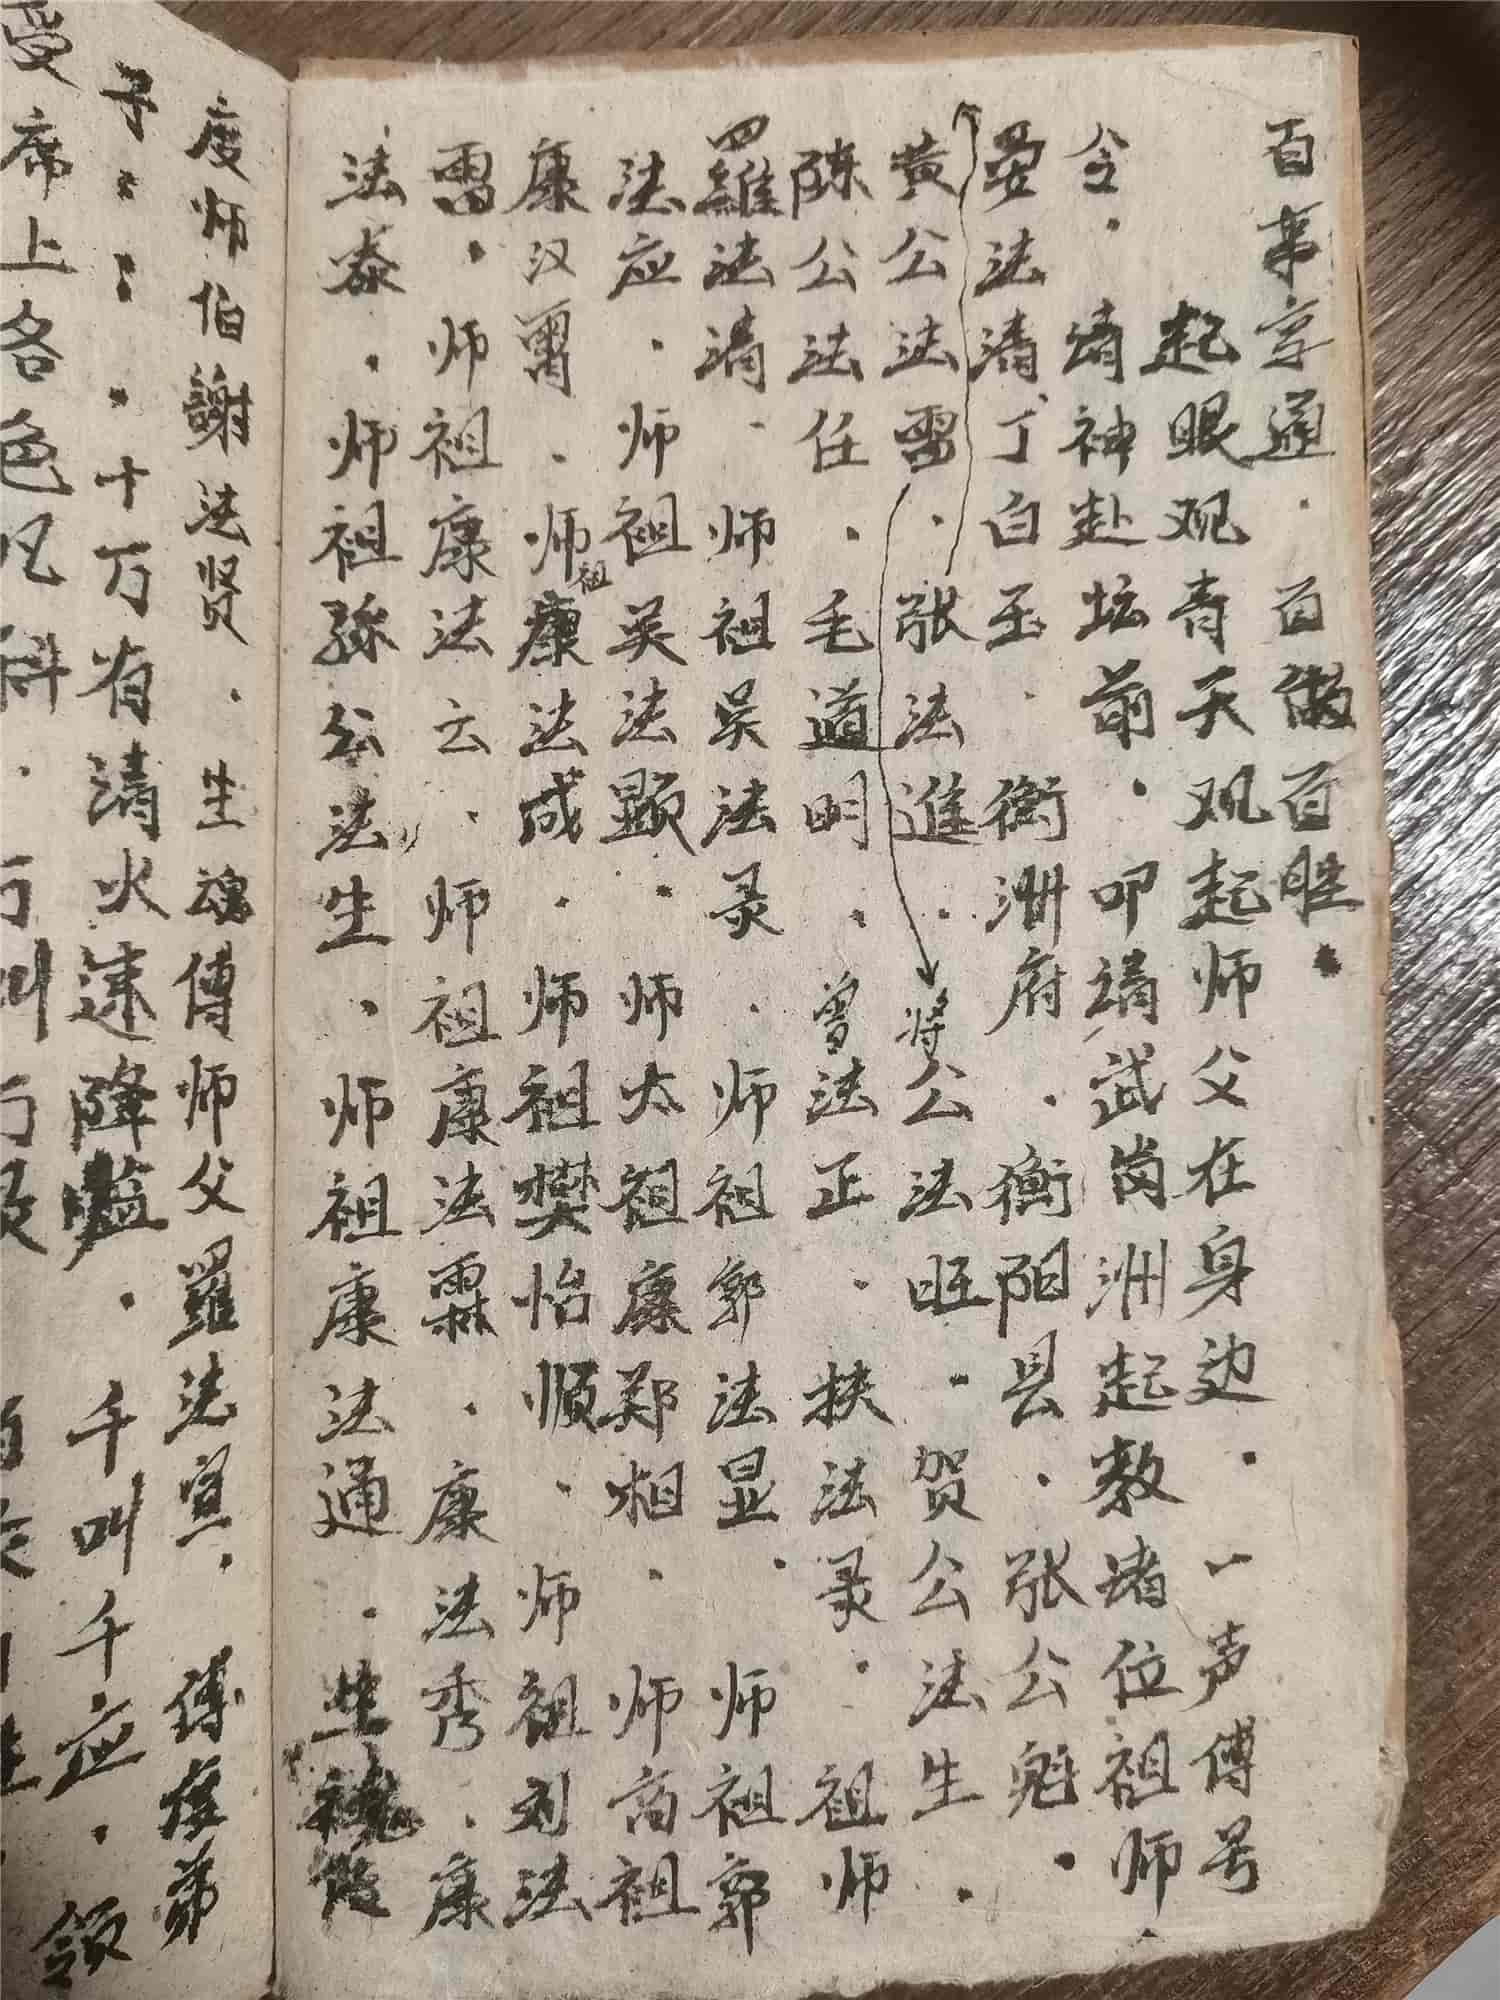 百事亨通.百做百胜.
起眼观青天观起师父在身边.一声傅号
令.请神赴坛前.叩請武岗洲起教诸位祖师.
晏法清丁白玉.衡洲府.衡阳县.张公魁.
黄公法雷.张法進.将公法旺.贺公法生.
陈公法任.毛道明.曾法正.扶法录.祖师
四羅法清.师祖吴法录.师祖郭法显.师祖郭
法应.师祖吴法顕.师太祖康郑相.师高祖
康汉爵.师祖康法成.师祖樊怡順.师祖刘法
雷.师祖康法云.师祖康法霖.康法秀.康
法泰.师祖孫公法生.师祖康法通.
度师伯謝法贤.生魂傅师父羅法宣.傅度弟
子:::.十万有请火速降臨.千叫千应.
受席上各色凡料.